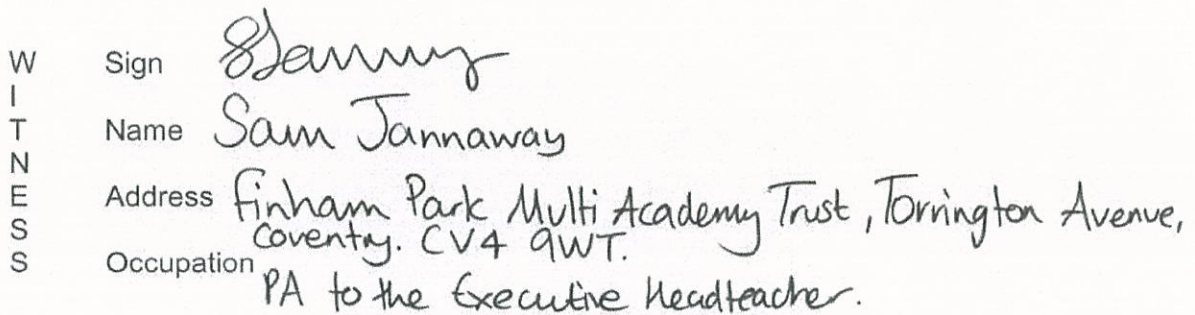 WITNESS
Sign
Name Sam Jannaway
Address Finham Park Multi Academy Trust, Torrington Avenue,
Coventry. CV4 9WT.
Occupation
PA to the Executive Headteacher.